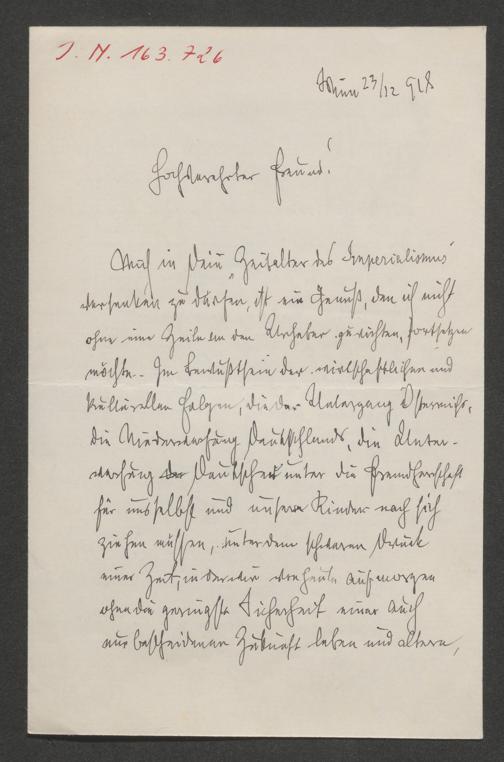 J. N. 163.726
Wien 23/12 918
Hochverehrter Freund!
Mich in Dein „Zeitalter des Imperialismus“
versenken zu dürfen, ist ein Genuß, den ich nicht
ohne eine Zeile an den Urheber zu richten, fortsetzen
möchte. Im Bewußtsein der wirtschaftlichen und
kulturellen Folgen, die der Untergang Österreichs,
die Niederwerfung Deutschlands, die Unter-
werfung der Deutschen unter die Fremdherrschaft
für uns selbst und unsere Kinder nach sich
ziehen müssen, unter dem schweren Druck
einer Zeit, in der wir von heute auf morgen
ohne die geringste Sicherheit einer auch
nur bescheidenen Zukunft leben und altern,